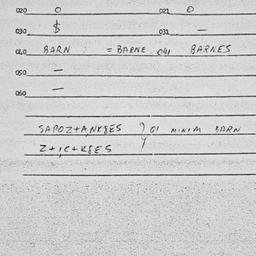 020 0 022 0
030 $ 031 —
040 BARN : = BARNE 041 BARNES
050 —
060 —
SAPOZ+A,NK&ES } GI MINIM BARN
Z+,C+K&ES